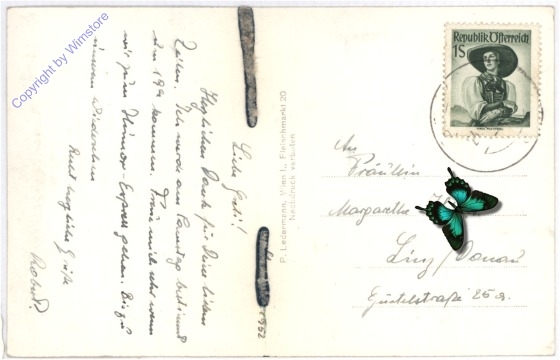 Liebe Greti!
Herzlichen Dank für Deine lieben
Zeilen. Ich werde am Samstag bestimmt
um 19h kommen. Freue mich sehr wenn
wir zum Humor-Express gehen. Bis zu
unserem Wiedersehen
Recht herzliche Grüße
Robert.
1952
P. Ledermann, Wien I., Fleischmarkt 20
Nachdruck verboten
Republik Österreich
1S
An
Fräulein
Margarethe
Linz/Donau
25a.
Copyright by Wimstore